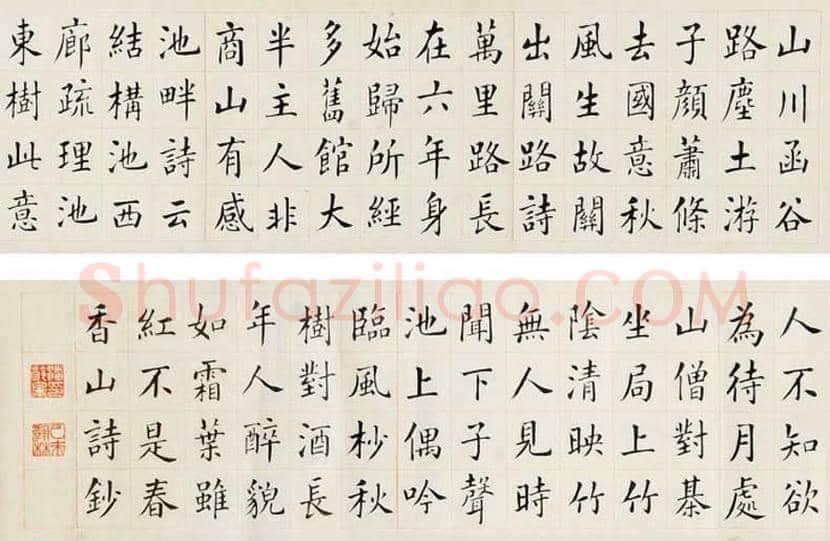 山川函谷
路塵土游
子顏蕭條
去國意秋
風生故關
出關路詩
萬里路長
在六年身
始歸所經
多舊館大
半主人非
商山有感
池畔詩云
結構池西
廊疏理池
東樹此意
Shufaziliao.COM
人不知欲
為待月處
山僧對棊
坐局上竹
陰清映竹
無人見時
聞下子聲
池上偶吟
臨風杪秋
樹對酒長
年人醉貌
如霜葉雖
紅不是春
香山詩鈔